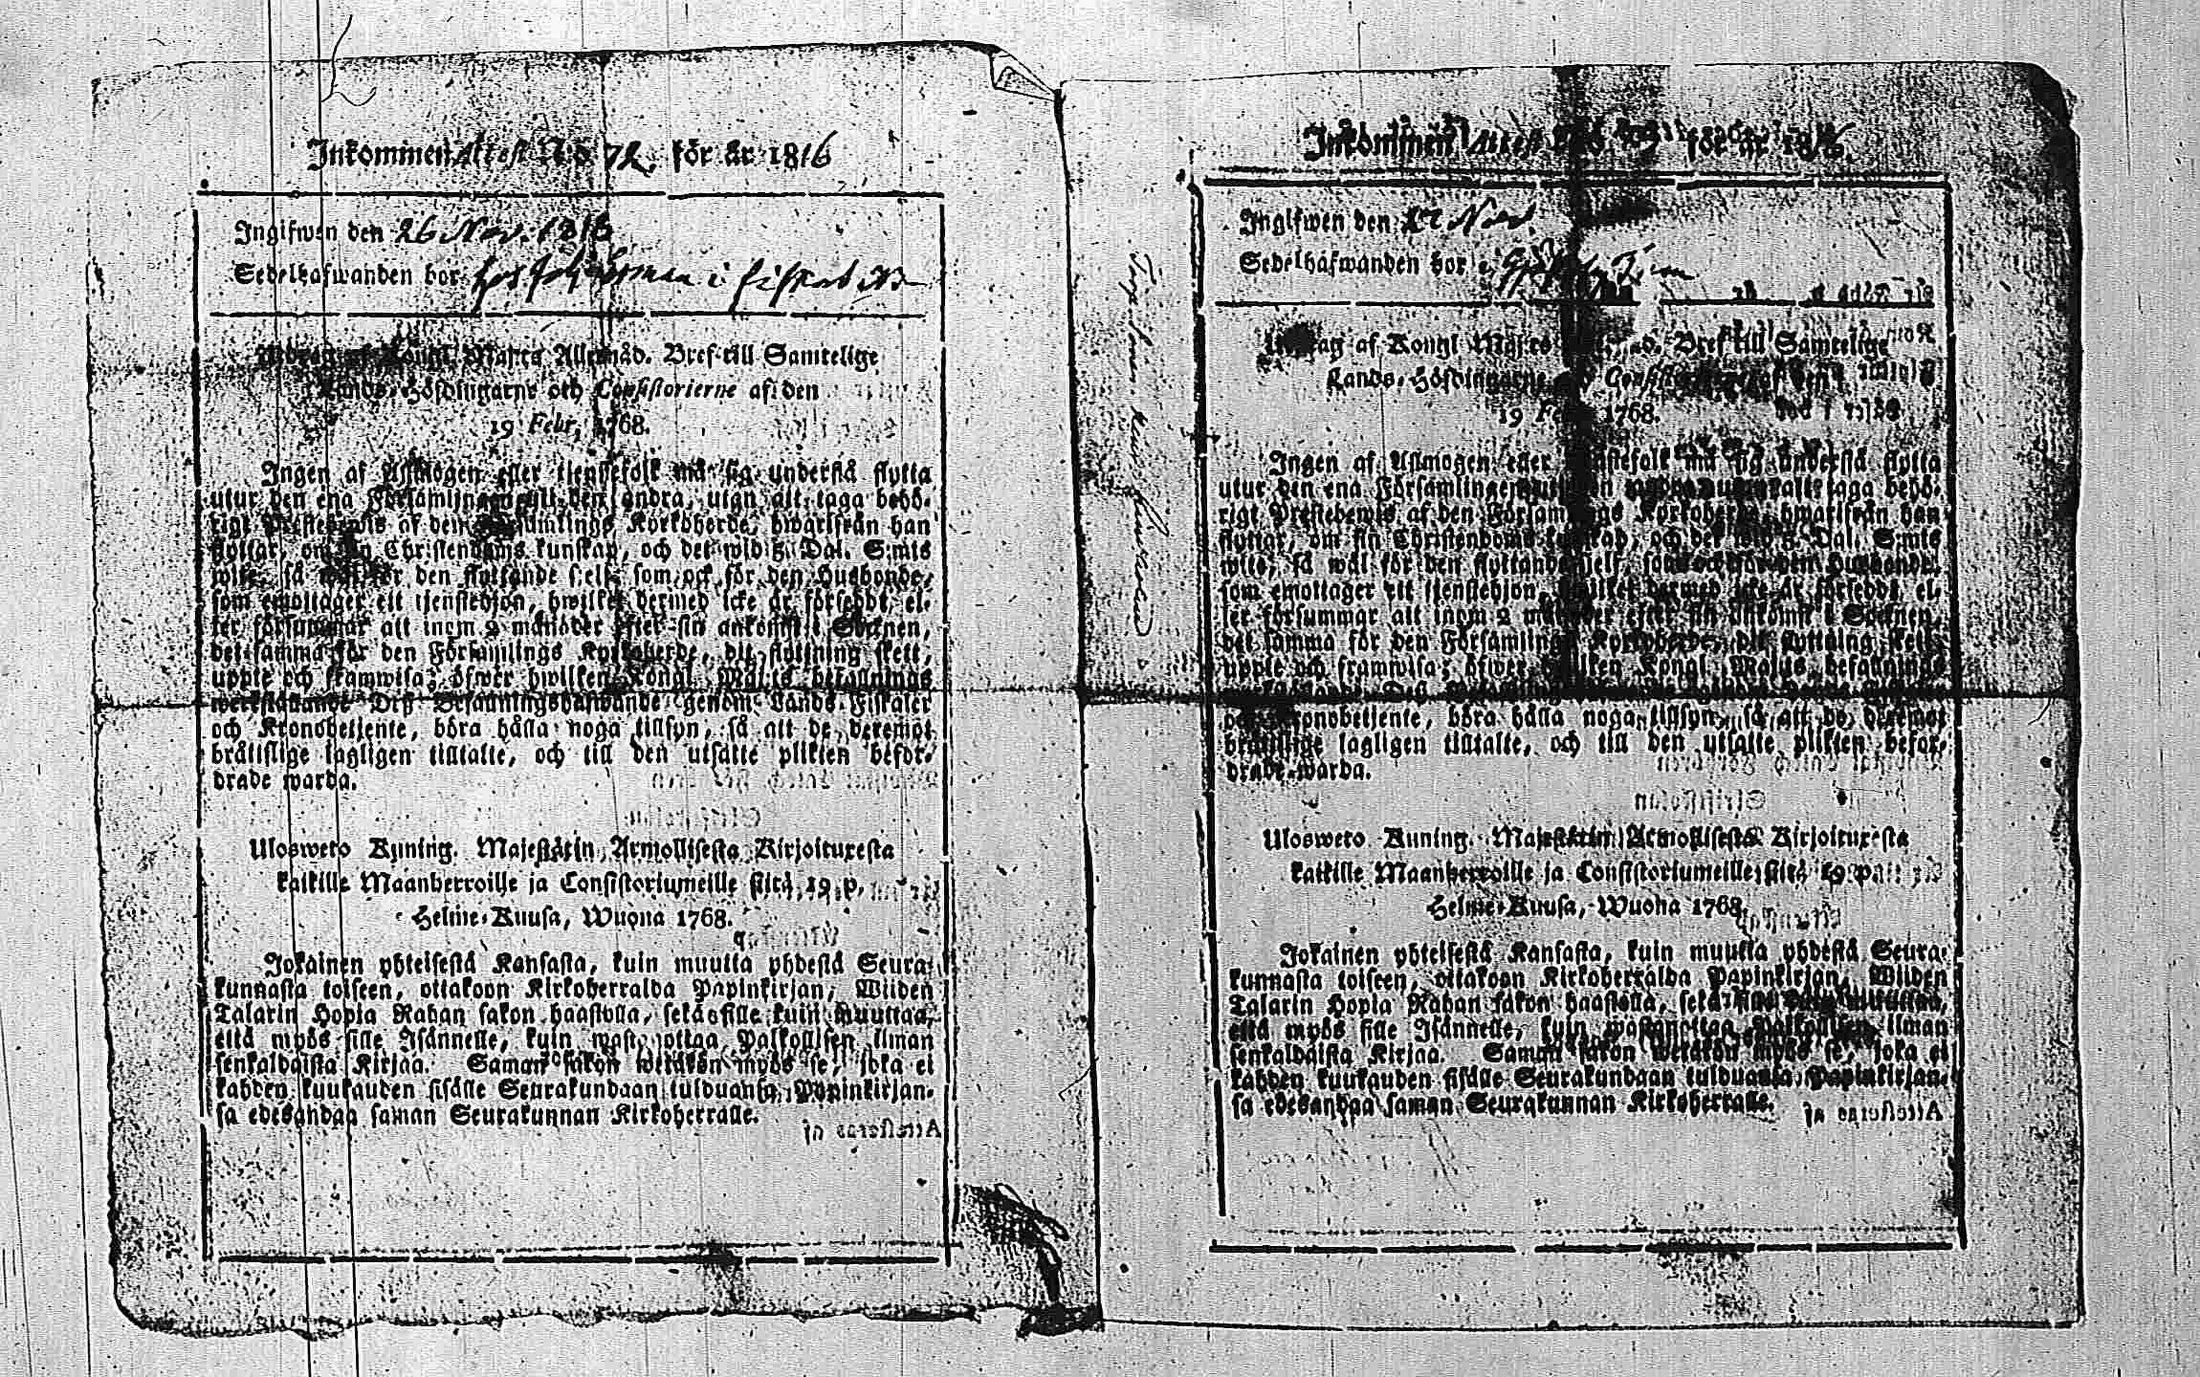 Inkommen Attest N:o 72 för år 1816
Ingifwen den 26 Nov. 1816
Sedelhafwanden bor hos i
Utdrag af Kongl. Maj:ts Allernåd. Bref till Samtelige
Lands-Höfdingarne och Consistorierne af den
19 Febr. 1768.
Ingen af Allmogen eller tienstefolk må sig understå flytta
utur den ena Församlingen till den andra, utan att taga behö-
rigt Prestebewis af den Församlings Kyrkoherde, hwarifrån han
flyttar, om sin Christendoms kunskap, och det wid 5 Dal. S:mts
wite, så wäl för den flyttande sjelf, som ock för den Husbonde,
som emottager ett tienstehjon, hwilket dermed icke är försedt, el-
ler försummar att inom 2 månader efter sin ankomst i Socknen,
det samma för den Församlings Kyrkoherde, dit flyttning skett,
uppte och framwisa; öfwer hwilken Kongl. Maj:ts befallnings
werkställande Dess Befallningshafwande genom Lands-Fiskaler
och Kronobetjente, böra hålla noga tillsyn, så att de, deremot
bråttslige lagligen tilltalte, och till den utsatte plikten befor-
drade warda.
Ulosweto Kuning. Majestätin Armollisesta Kirjoituxesta
kaikille Maanherroille ja Consistoriumeille siitä 19 p.
Helme-Kuusa, Wuona 1768.
Jokainen yhteisestä Kansasta, kuin muutta yhdestä Seura-
kunnasta toiseen, ottakoon Kirkoherralda Papinkirjan, Wiiden
Talarin Hopia Rahan sakon haastolla, sekä sille kuin muuttaa,
että myös sille Isännelle, kuin wastanottaa Palkollisen ilman
senkaldaista Kirjaa. Saman sakon wetäkön myös se, joka ei
kahden kuukauden sisälle Seurakundaan tulduansa, Papinkirjan-
sa edesandaa saman Seurakunnan Kirkoherralle.
Inkommen Attest N:o för år 1816.
Ingifwen den Nov.
Sedelhafwanden bor i
Utdrag af Kongl Maj:ts Bref till Samtelige
Lands-Höfdingarne och Consistorierne af den
19 Febr. 1768.
Ingen af Allmogen eller tienstefolk må sig understå flytta
utur den ena Församlingen till den andra, utan att taga behö-
rigt Prestebewis af den Församlings Kyrkoherde, hwarifrån han
flyttar, om sin Christendoms kunskap, och det wid 5 Dal. S:mts
wite, så wäl för den flyttande sjelf, som ock för den Husbonde,
som emottager ett tienstehjon, hwilket dermed icke är försedt, el-
ler försummar att inom 2 månader efter sin ankomst i Socknen,
det samma för den Församlings Kyrkoherde, dit flyttning skett,
uppte och framwisa; öfwer hwilken Kongl. Maj:ts befallnings
och Kronobetjente, böra hålla noga tillsyn, så att de, deremot
bråttslige lagligen tilltalte, och till den utsatte plikten befor-
drade warda.
Ulosweto Kuning. Majestätin Armollisesta Kirjoituxesta
kaikille Maanherroille ja Consistoriumeille, siitä 19 p.
Helme-Kuusa, Wuona 1768.
Jokainen yhteisestä Kansasta, kuin muutta yhdestä Seura-
kunnasta toiseen, ottakoon Kirkoherralda Papinkirjan, Wiiden
Talarin Hopia Rahan sakon haastolla, sekä sille kuin muuttaa,
että myös sille Isännelle, kuin wastanottaa Palkollisen ilman
senkaldaista Kirjaa. Saman sakon wetäkön myös se, joka ei
kahden kuukauden sisälle Seurakundaan tulduansa, Papinkirjan-
sa edesandaa saman Seurakunnan Kirkoherralle.